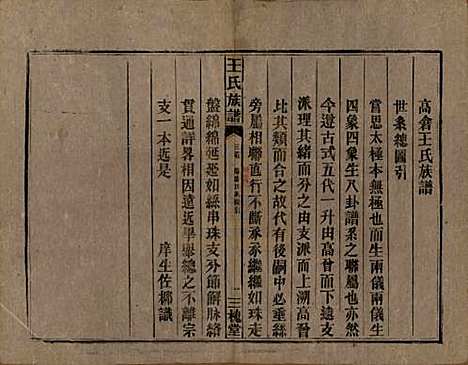 高倉王氏族譜
世系總圖引
嘗思太極本無極也而生兩儀兩儀生
四象四象生八卦譜系之聯屬也亦然
今遵古式五代一升由高曾而下遠支
派理其緒而分之由支派而上溯高曾
比其類而合之故代有後嗣中必垂絲
旁屬相聯直行不斷承承繼繼如珠走
盤綿綿延延如絲串珠支分節解脉絡
貫通詳畧相因遠近畢舉總之不離宗
支一本近是
庠生佐 識
王氏族譜
三槐堂